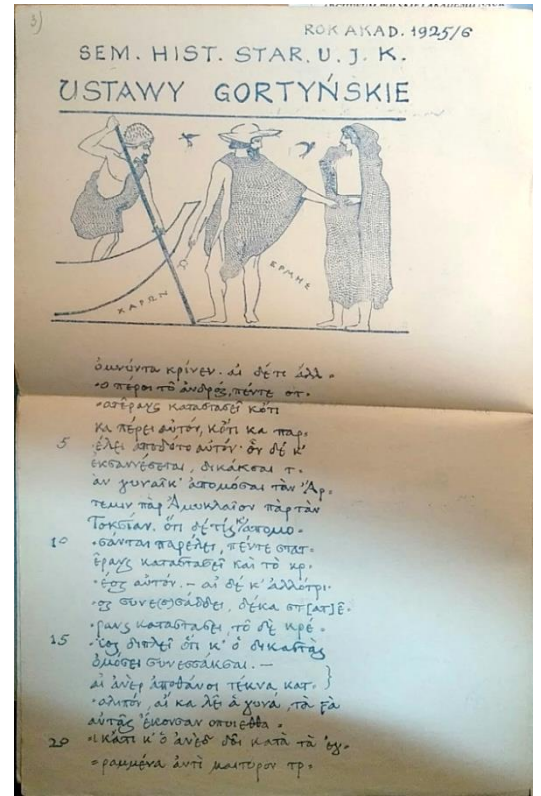 3)
ROK AKAD. 1925/6
SEM. HIST. STAR. U. J. K.
USTAWY GORTYŃSKIE
ΧΑΡΩΝ
ΕΡΜΗΣ
ὀμνύντα κρίνεν. αἰ δέ τι ἄλλ-
-ο πέροι τῶ ἀνδρός, πέντε στ-
-ατε̃ρανς καταστασεῖ κὄτι
κα πέρει αὐτόν, κὄτι κα παρ-
5 -έλει ἀποδότο αὐτόν· ὂν δέ κ'
ἐκσαννέσεται, δικάκσαι τ-
ὰν γυναῖκ' ἀπομόσαι τὰν Ἄρ-
τεμιν πὰρ Ἀμυκλαῖον πὰρ τὰν
Τοκσίαν. ὄτι δέ τίς κ' ἀπομο-
10 -σάνσαι παρέλει, πέντε στατ-
ε̃ρανς καταστασεῖ καὶ τὸ κρ-
-έος αὐτόν. – αἰ δέ κ' ἀλλότρι-
-ος συνε(σ)σάδδει, δέκα στ[ατ]ε̃-
-ρανς καταστασεῖ, τὸ δὲ κρέ-
15 -ιος διπλεῖ ὄτι κ' ὀ δικαστὰς
ὀμόσει συνεσσάκσαι. –
αἰ ἀνὲρ ἀποθάνοι τέκνα κατ-
-αλιπόν, αἰ κα λε̃ι ἀ γυνά, τὰ ϝὰ
αὐτᾶς ἔκονσαν ὀπυίεθθα-
20 -ι κἄτι κ' ὀ ἀνὲδ δο̃ι κατὰ τὰ ἐγ-
-ραμμένα ἀντὶ μαιτύρον τρ-